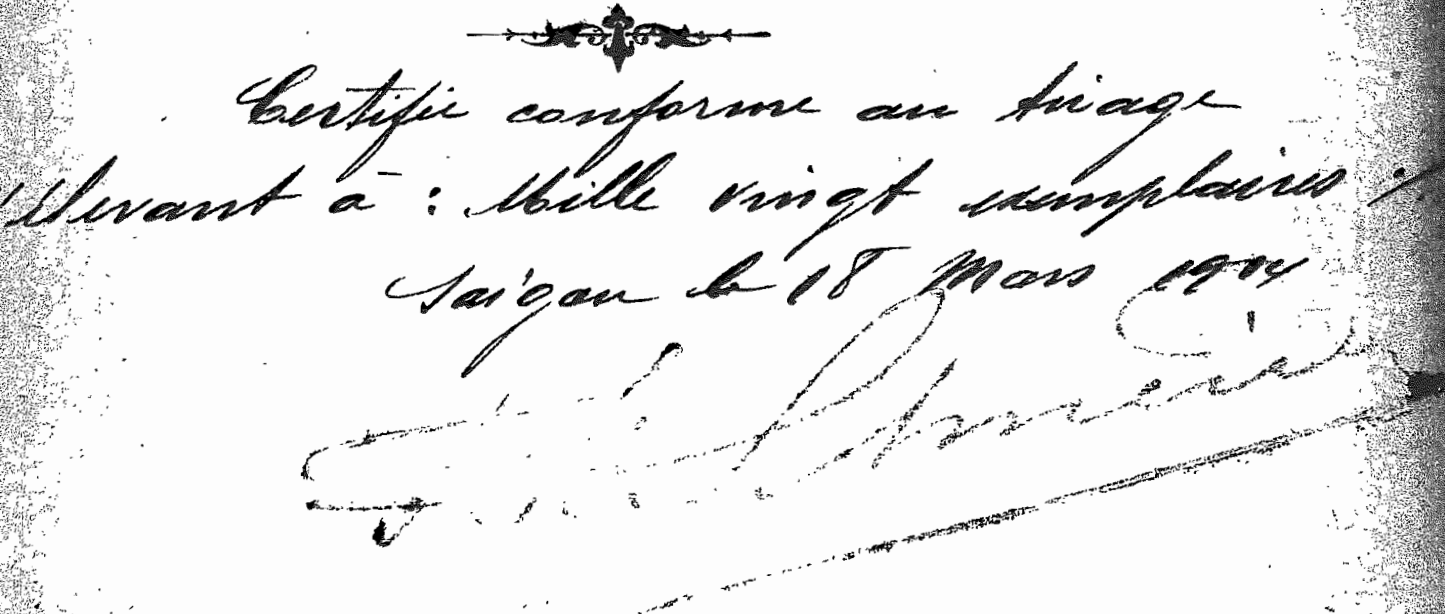 Certifié conforme au tirage
s'élevant à : Mille vingt exemplaires ./.
Saigon le 18 Mars 1904